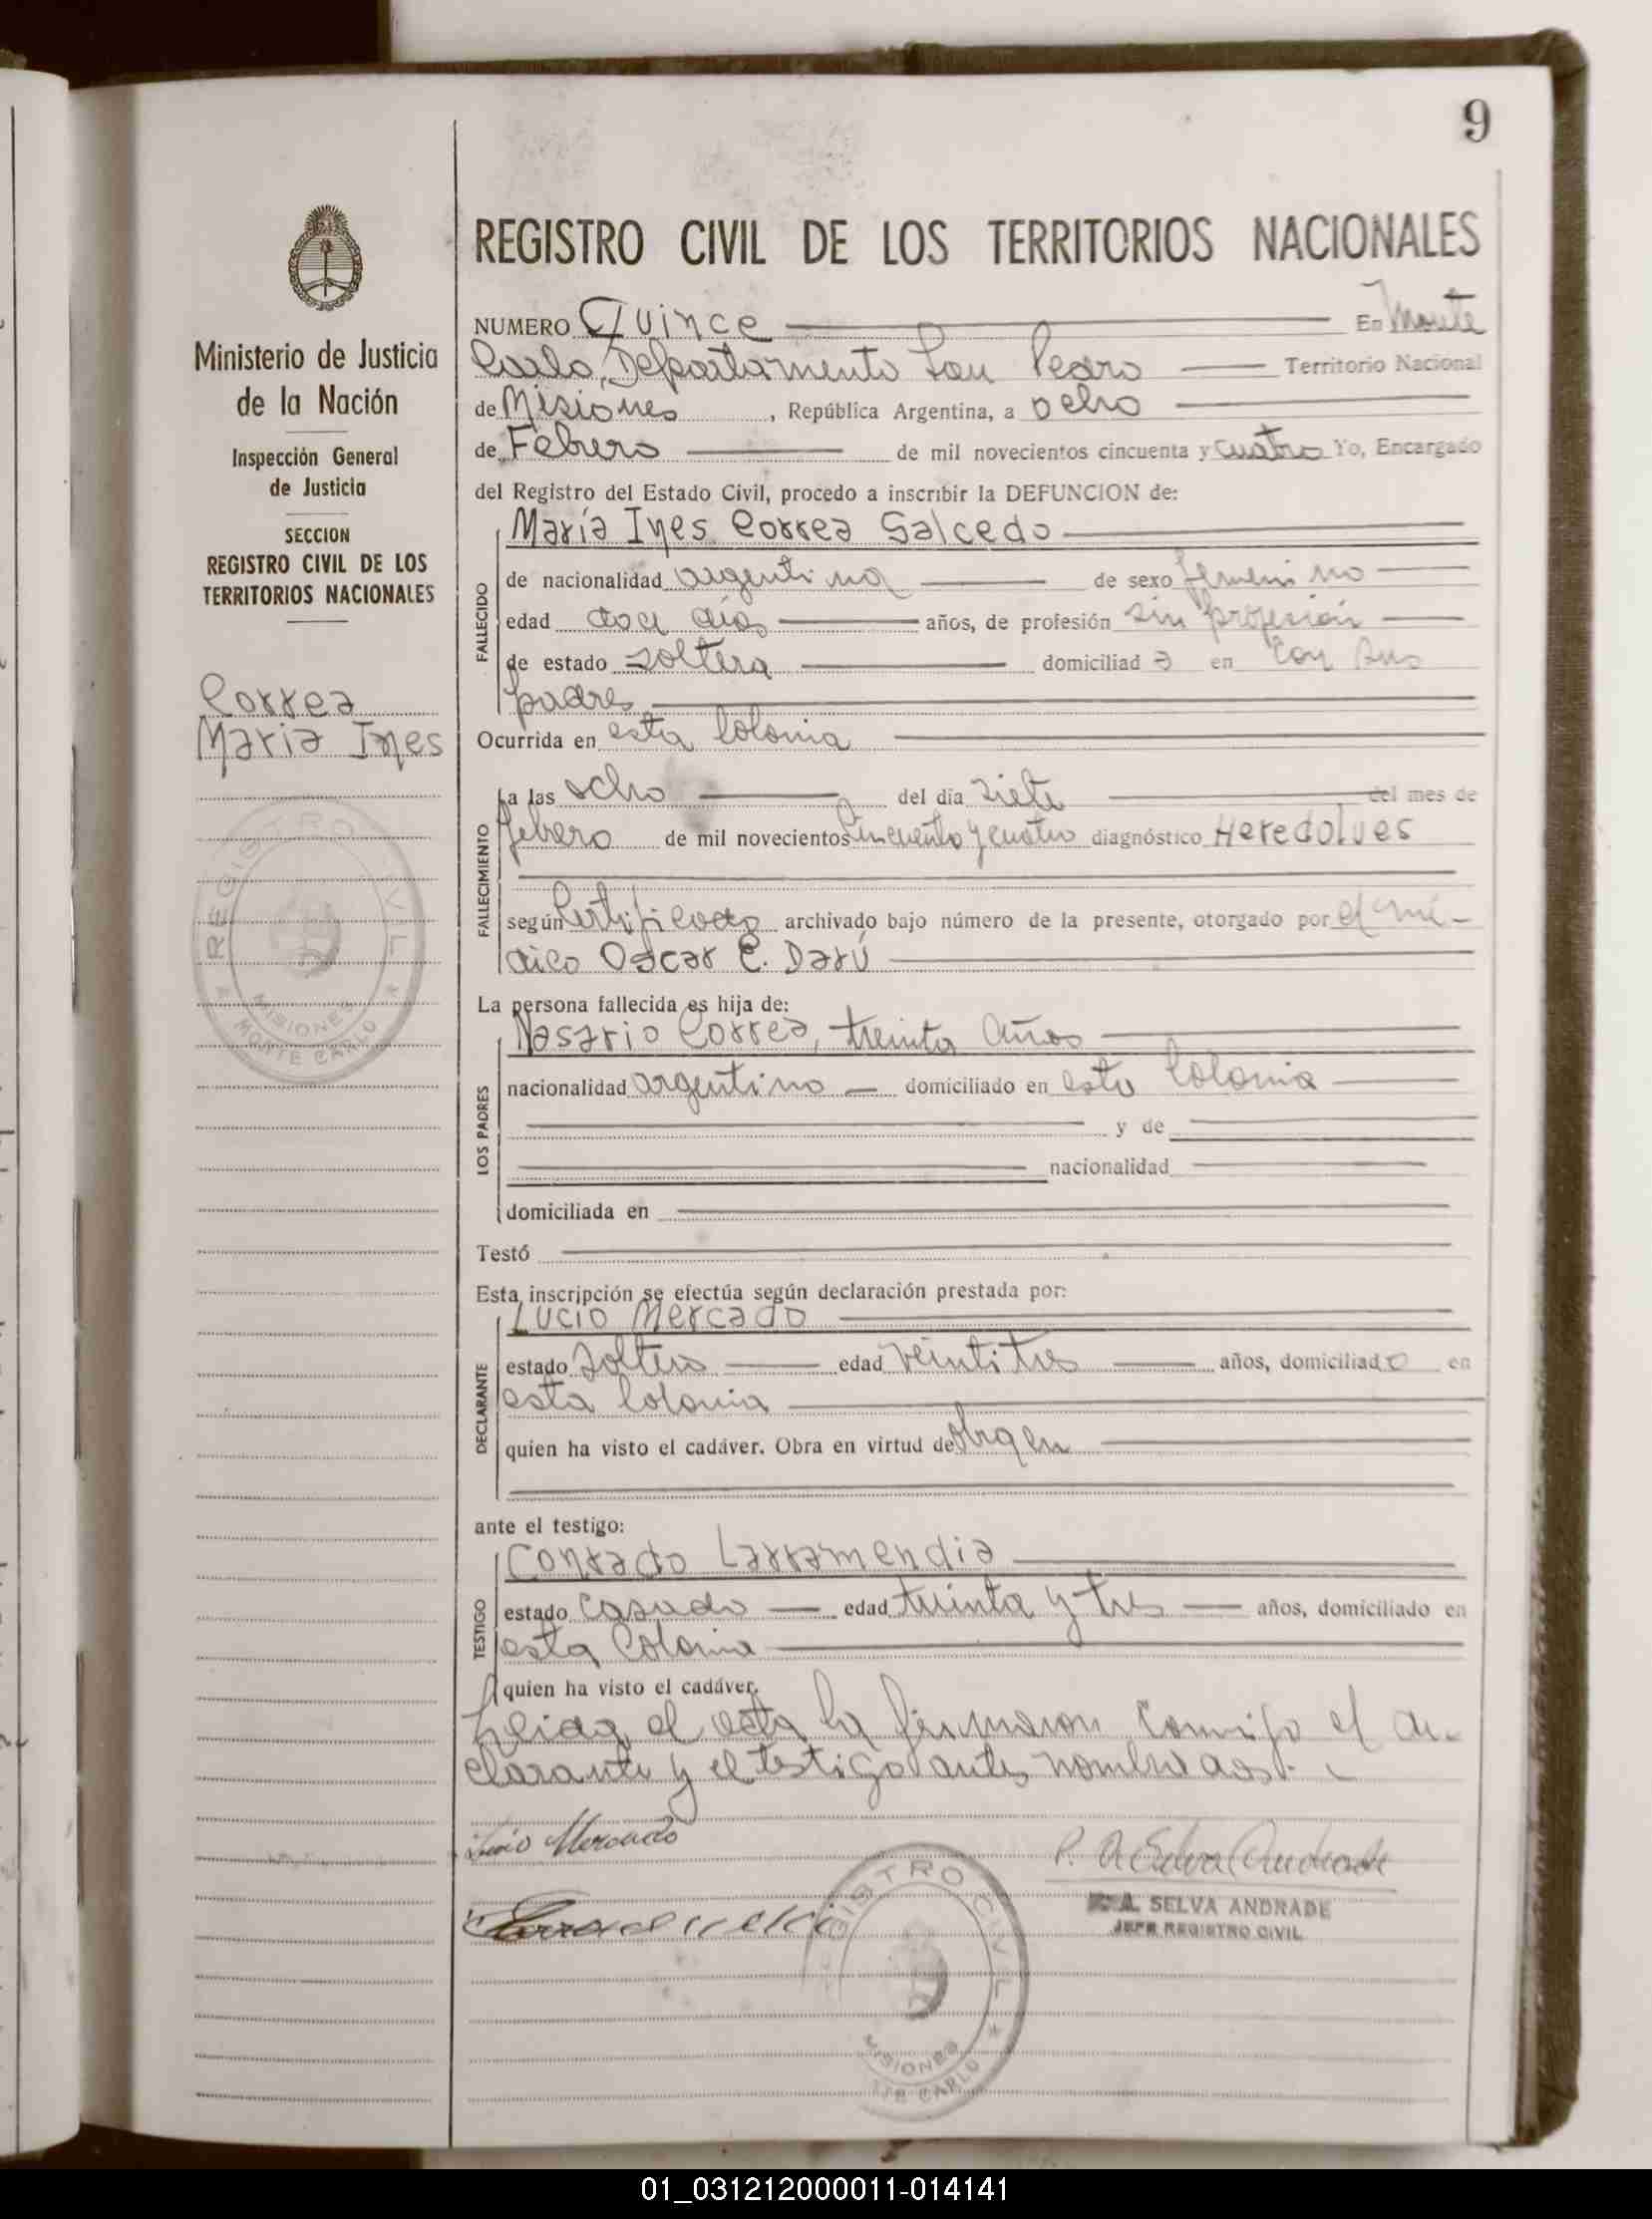 9
Ministerio de Justicia
de la Nación
Inspección General
de Justicia
SECCION
REGISTRO CIVIL DE LOS
TERRITORIOS NACIONALES
Correa
Maria Ines
REGISTRO CIVIL
MISIONES
MONTE CARLO
REGISTRO CIVIL DE LOS TERRITORIOS NACIONALES
NUMERO Quince En Monte
Carlo, Departamento San Pedro Territorio Nacional
de Misiones, República Argentina, a ocho
de Febrero de mil novecientos cincuenta y cuatro Yo, Encargado
del Registro del Estado Civil, procedo a inscribir la DEFUNCION de:
María Ines Correa Salcedo
FALLECIDO
de nacionalidad argentina de sexo femenino
edad dos días años, de profesión sin profesión
de estado soltera domiciliad a en con sus
padres
Ocurrida en esta Colonia
FALLECIMIENTO
a las ocho del día siete del mes de
febrero de mil novecientos cincuenta y cuatro diagnóstico Heredolues
según certificado archivado bajo número de la presente, otorgado por el mé-
dico Oscar E. Darú
La persona fallecida es hija de:
LOS PADRES
Nasario Correa, treinta años
nacionalidad argentino domiciliado en esta Colonia
y de
nacionalidad
domiciliada en
Testó
Esta inscripción se efectúa según declaración prestada por:
DECLARANTE
Lucio Mercado
estado soltero edad veintitres años, domiciliado en
esta Colonia
quien ha visto el cadáver. Obra en virtud de
ante el testigo:
TESTIGO
Conrado Larramendia
estado casado edad treinta y tres años, domiciliado en
esta Colonia
quien ha visto el cadáver.
Leida el acta la firmaron conmigo el de-
clarante y el testigo antes nombrados.
Lucio Mercado
P. A. Selva Andrade
P. A. SELVA ANDRADE
JEFE REGISTRO CIVIL
REGISTRO CIVIL
MISIONES
MONTE CARLO
01_031212000011-014141